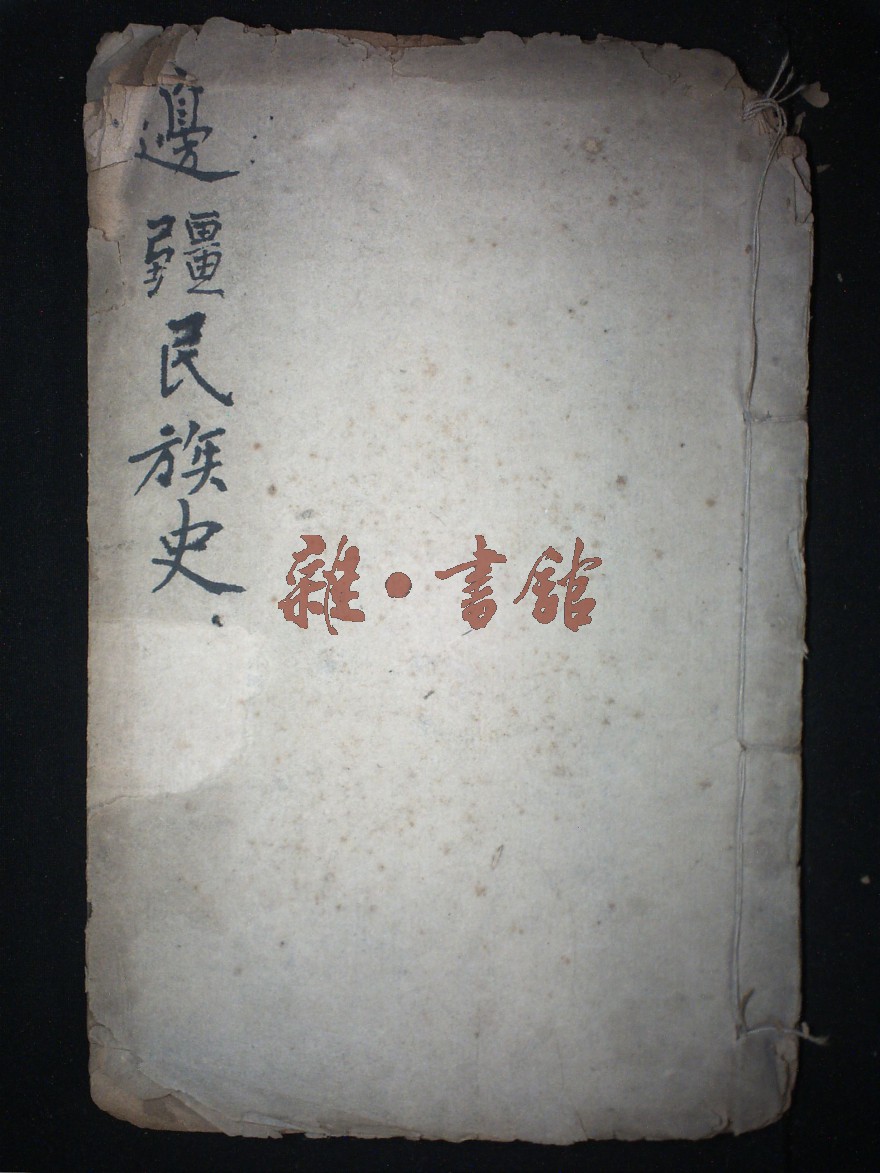 邊疆民族史
雜·書館